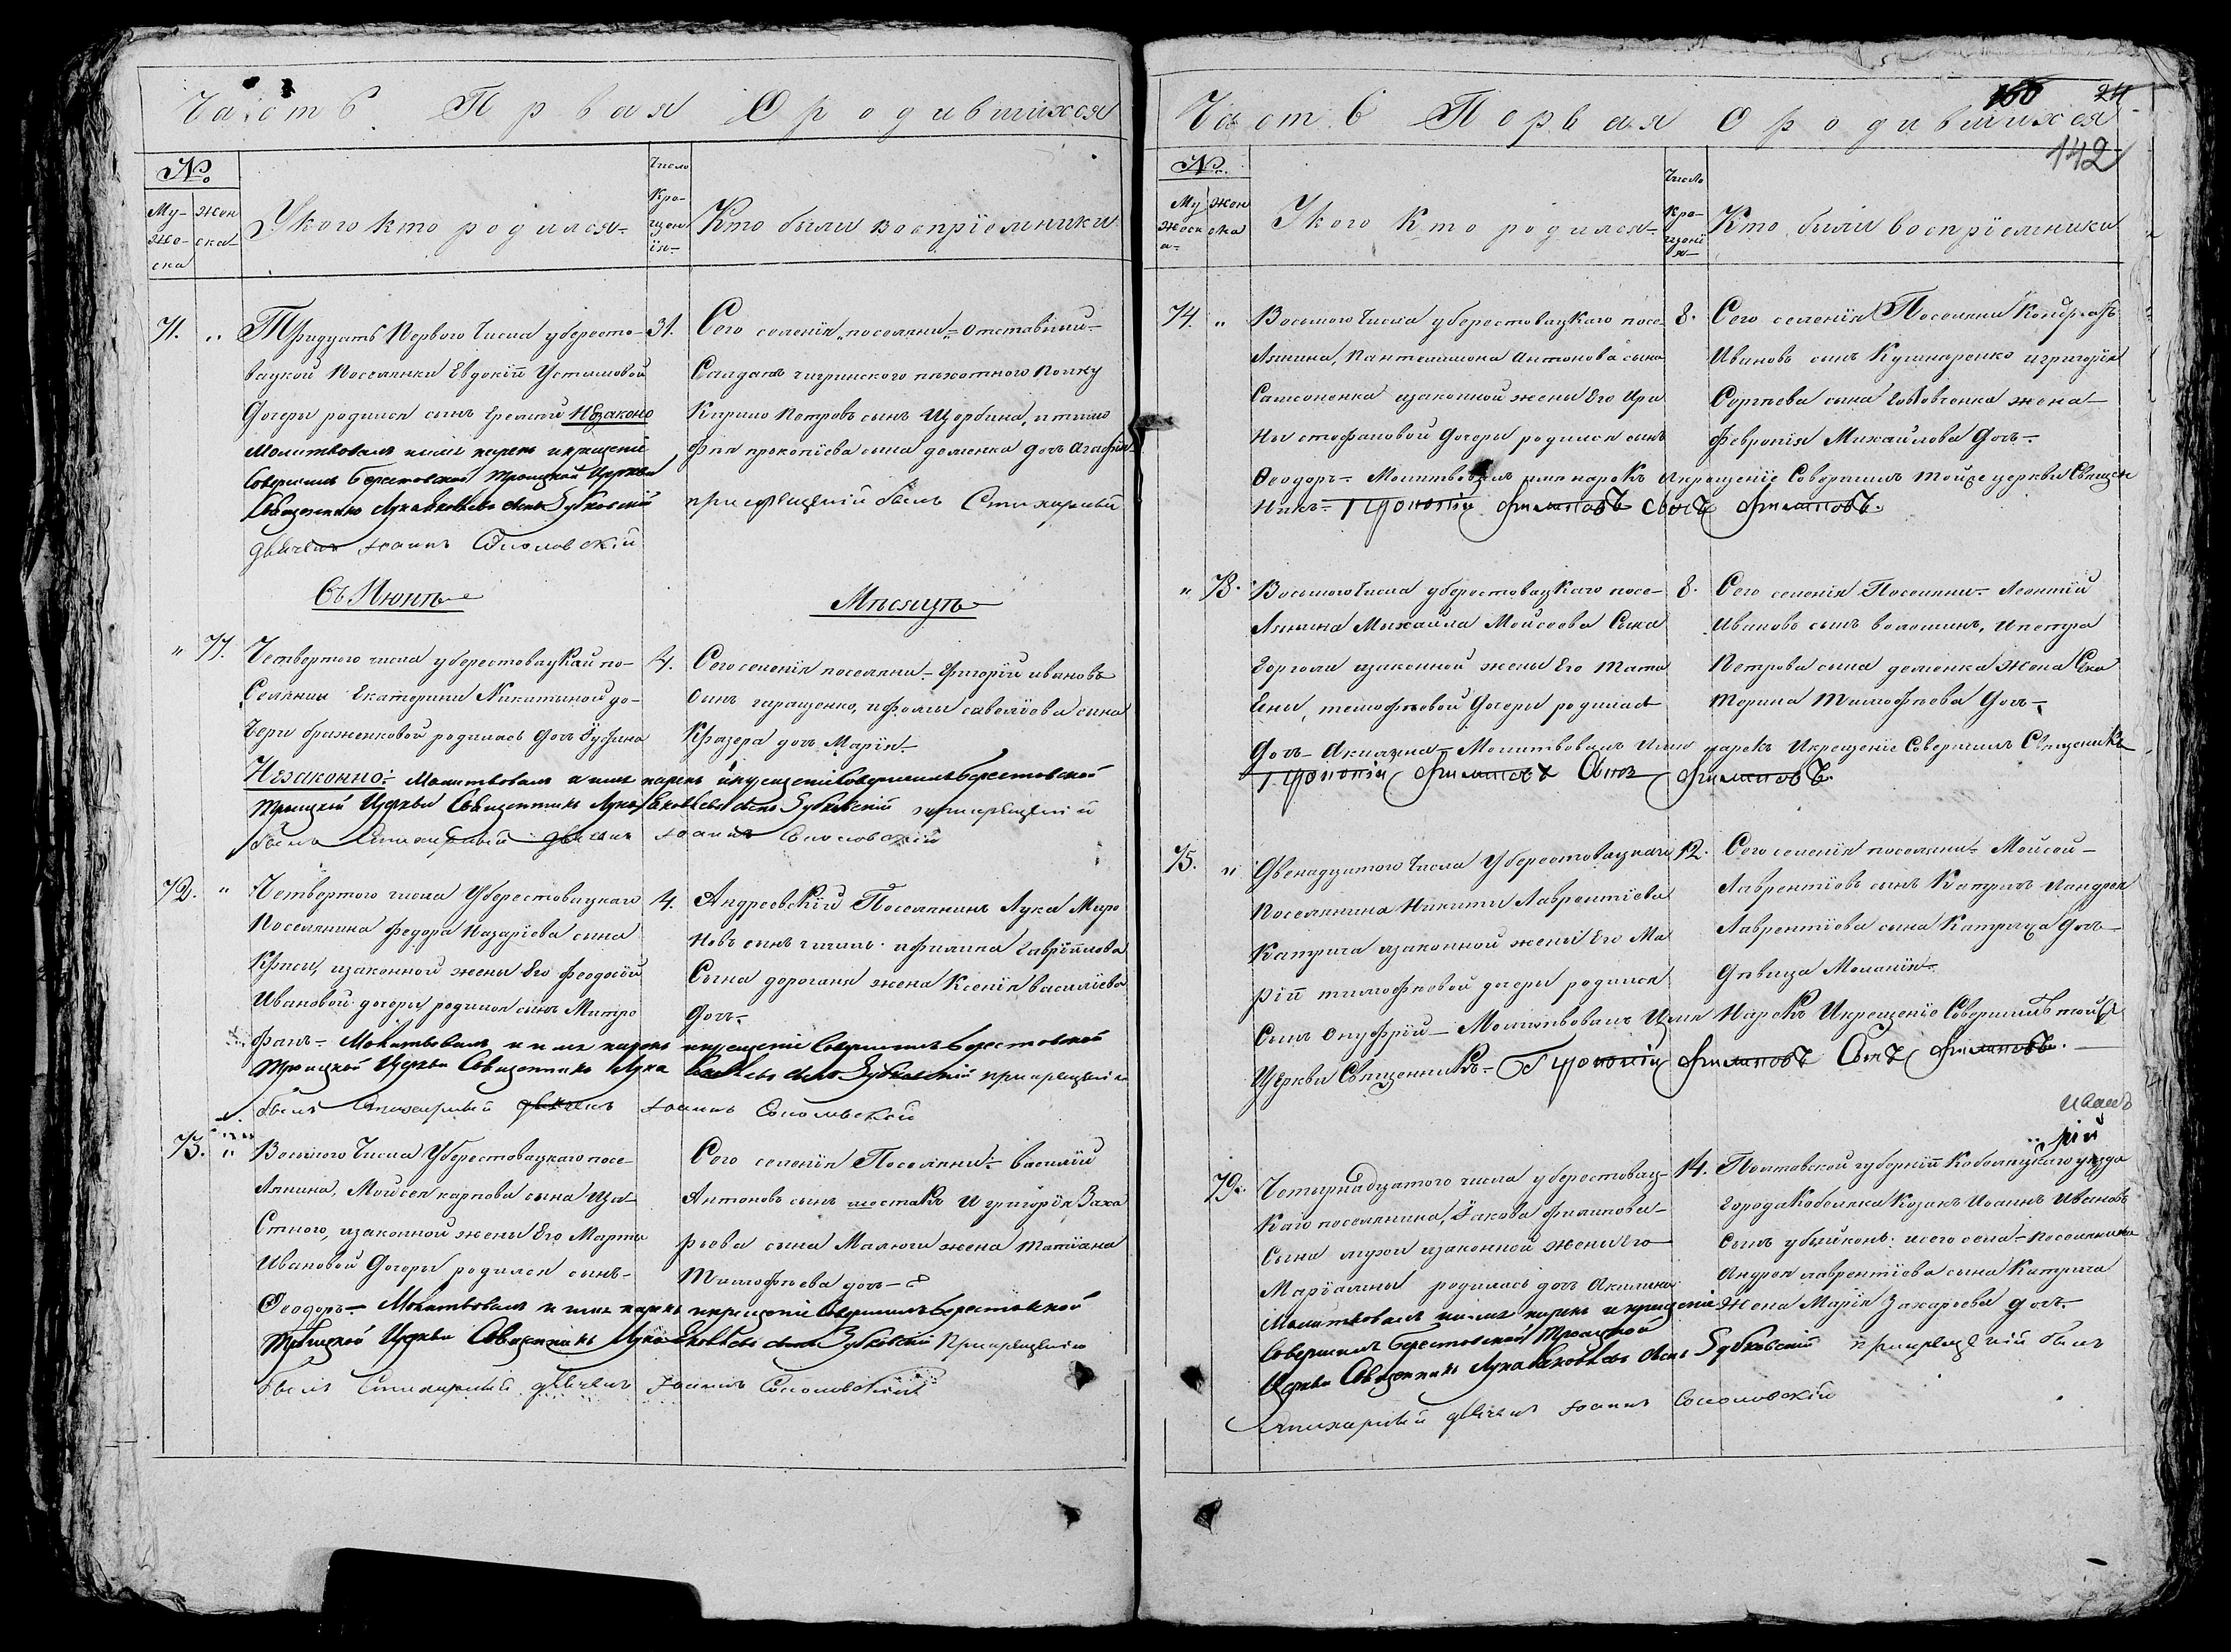 Часть Первая О родившихся
№
Му-
жес
ска
жен
ска
У кого кто родился
Число
Кре-
щен
ія
Кто были воспріемники
71. „ Тридцать Перваго Числа у бересто-
вацкой Поселянки Евдокіи Устимовой
Дочери родился сынъ Еремей Незаконо
Молитвовалъ имя нарекъ и крещеніе
Совершилъ Берестовской Троицкой Церкви
Священникъ Лука Яковлевъ сынъ Зубковскій
дьячекъ Іоаннъ Соколовскій
31. Сего селенія поселяни отставный
Салдатъ пехотного Полку
Кирило Петровъ сынъ Щербина, и тимо
фея прокопіева сына деменка дочь Агафія
при крещеніи былъ Стихарный
Въ Июнѣ
Мѣсяцѣ
„ 77. Четвертого числа у берестовацкай по-
Селянки Екатерини Никитиной до-
Чери браженковой родилась дочь
Незаконно. Молитвовалъ имя нарекъ и крещеніе Совершилъ Берестовской
Троицкой Церкви Священникъ Лука Яковлевъ сынъ Зубковскій при крещеніи
былъ Стихарный дьячекъ Іоаннъ Соколовскій
4. Сего селенія поселяни Григорій ивановъ
Сынъ геращенко, и фомы савеліова сына
Кравера дочь Марія
72. „ Четвертого числа У берестовацкаго
Поселянина федора Назаріева сына
Кривы, изаконной жены Его феодосіи
Ивановой дочери родился сынъ Митро
фанъ Молитвовалъ имя нарекъ и крещеніе Совершилъ Берестовской
Троицкой Церкви Священникъ Лука Яковлевъ сынъ Зубковскій при крещеніи
былъ Стихарный дьячекъ Іоаннъ Соколовскій
4. Андреевскій Поселянинъ Лука Миро
новъ сынъ и филипа Гавріилова
Сына дорогана жена Ксенія василіева
Дочь
73. „ Восмого Числа У берестовацкаго посе-
Лянина, Мойсея карпова сына
Стного, изаконной жены Его Марты
Ивановой Дочери родился сынъ
Феодоръ Молитвовалъ имя нарекъ и крещеніе Совершилъ Берестовской
Троицкой Церкви Священникъ Лука Яковлевъ сынъ Зубковскій При крещеніи
былъ Стихарный дьячекъ Іоаннъ Соколовскій
Сего селенія Поселяни Василій
Антоновъ сынъ шестакъ И григорія Заха
рьева сына Малюги жена татіана
Тимофѣева дочь 8
Часть Первая О родившихся
160 24
142
№
Му
жеск
а
жен
ска
У кого Кто родился
Число
Кре-
щені
я
Кто были воспріемники
74. „ Восмого Числа у берестовацкаго посе
Лянина, Пантелимона Антонова сына
Самсоненка изаконной жены Его Ири
Ны стефановой Дочери родился сынъ
Феодоръ Молитвовалъ имя нарекъ И крещеніе Совершилъ той же церкви Священ
Никъ филиповъ сынъ филиповъ.
8. Сего селенія Поселяни Кондратъ
Ивановъ сынъ Кушнаренко и григорія
Сергѣева сына жена
Февронія Михайлова Дочь
„ 78. Восмого Числа у берестовацкаго посе-
Лянина Михайла Мойсеева Сына
изаконной жены Его Тать
Яны, тимофѣевой Дочери родилась
Дочь Акилина Молитвовалъ Имя нарекъ И крещеніе Совершилъ Священникъ
филиповъ сынъ филиповъ.
8. Сего селенія Поселяни Леонтій
Ивановъ сынъ волошинъ, и петра
Петрова сына деменка Жена Ека
Терина Тимофѣева Дочь
75. „ Двенадцатого Числа У берестовацкаго
Поселянина Никиты Лаврентіева
Катрича изаконной жены Его Ма
ріи тимофѣевой дочери родился
Сынъ Онуфрій Молитвовалъ Имя Нарекъ И крещеніе Совершилъ той же
Церкви Священникъ филиповъ сынъ филиповъ.
12. Сего селенія поселяни Мойсей
Лаврентіевъ сынъ Катричъ и андрея
Лаврентіева сына Катрича Дочь
Дѣвица Меланія
79. Четырнадцатого числа у берестовац-
каго поселянина, Іакова филипова
Сына мухи изаконной жены Его
Маріамны родилась дочь Акилина
Молитвовалъ имя нарекъ и крещеніе
Совершилъ Берестовской Троицкой
Церкви Священникъ Лука Яковлевъ сынъ Зубковскій при крещеніи былъ
Стихарный дьячекъ Іоаннъ Соколовскій
14. Полтовской губерніи Кобеляцкаго уезда
Города Кобеляка Козакъ Иоаннъ Ивановъ
Сынъ и сего села поселянина
Андрея лаврентіева сына Катрича
Жена Марія Захарьева дочь